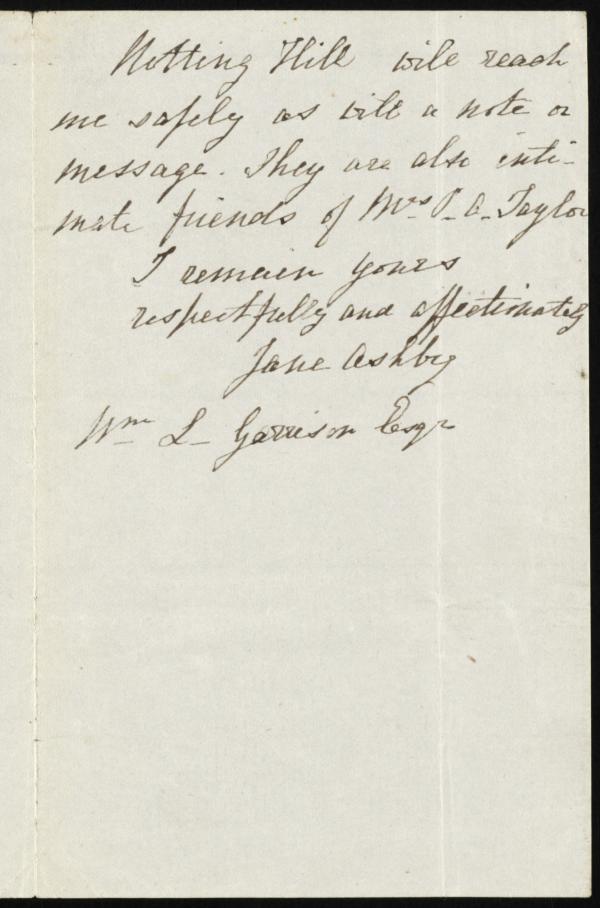 Notting Hill will reach
me safely as will a note or
message. They are also inti-
mate friends of Mrs P. A. Taylor
I remain yours
respectfully and affectionately
Jane Ashby
Wm L- Garrison Esqr